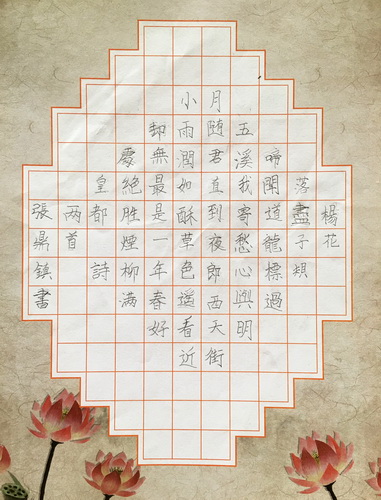 楊花
落盡子規
啼聞道龍標過
五溪我寄愁心與明
月随君直到夜郎西天街
小雨潤如酥草色遥看近
却無最是一年春好
處絶胜煙柳满
皇都 詩
两首
張鼎鎮書